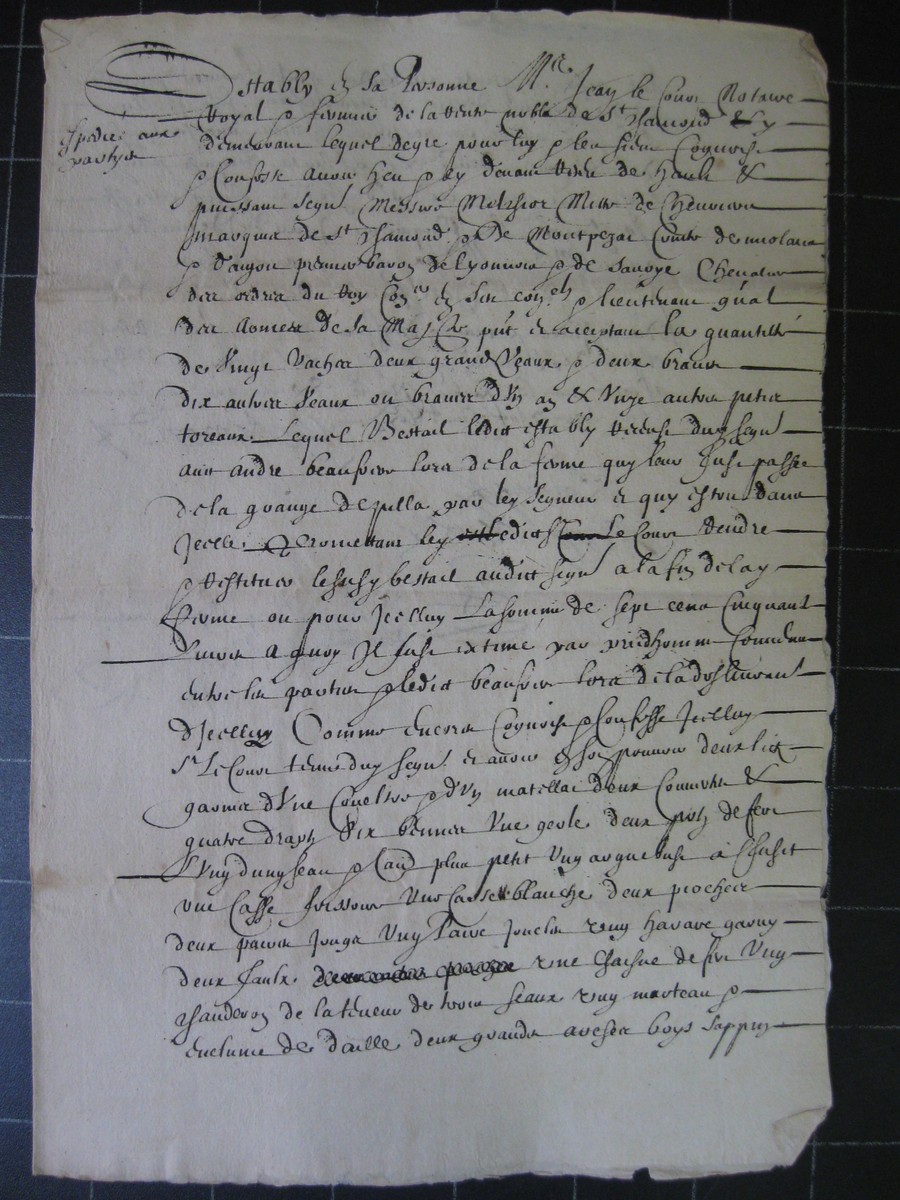 Estably en sa Personne Mre. Jean le Cour Notaire
Royal & fermier de la terre noble de St Chamond & y
Expedié aux
partyes
demeurant lequel de gre pour luy & les siens Cognoist
& Confesse avoir heu & cy devant Retiré de Hault &
puissant Seignr Messire Melchior Mitte de Chevrieres
marquis de St Chamond & de Montpezac Comte de miolans
& d'anjou premier baron de lyonnois & de Savoye Chevalier
des ordres du Roy Conser en ses conels & lieutenant gnal
des armees de sa Maté pnt & acceptant la quantité
de Vingt Vaches deux grands Veaux & deux braves
dix autres Veaux ou braves d'un an & Unze autres petits
toreaux Lequel Bestail ledict estably dud Seignr
andre beaufrere lors de la ferme quy leur fust passée
de la grange de pilla par led Seigneur & quy estoit dans
Icelle Promettant led ledict le Cour Rendre
& Restituer le susd bestail audict Seignr a la fin de lad
ferme ou pour Icelluy La somme de sept cens Cinquante
Livres a quoy Il fust extimé par prudhommes
entre les parties & ledict beaufrere lors de la deslivrance
d'Icelluy Comme encores Cognoist & Confesse Icelluy
Sr Le Cour tenir dud Seignr & avoir en son pouvoir deux licts
garnis d'Une & d'Un matellas deux Couvertes &
quatre draps Six bennes Une geole deux potz de fer
L'Un d'un seau & l'au plus petit Un arquebuse a fusit
une Casse Une Casse blanche deux pioches
deux paires Un Paire & un harare garny
deux faulx une Chaisne de fer Un
chauderon de la teneur de trois seaux & un marteau &
enclume de daille deux grandes arches boys sappin